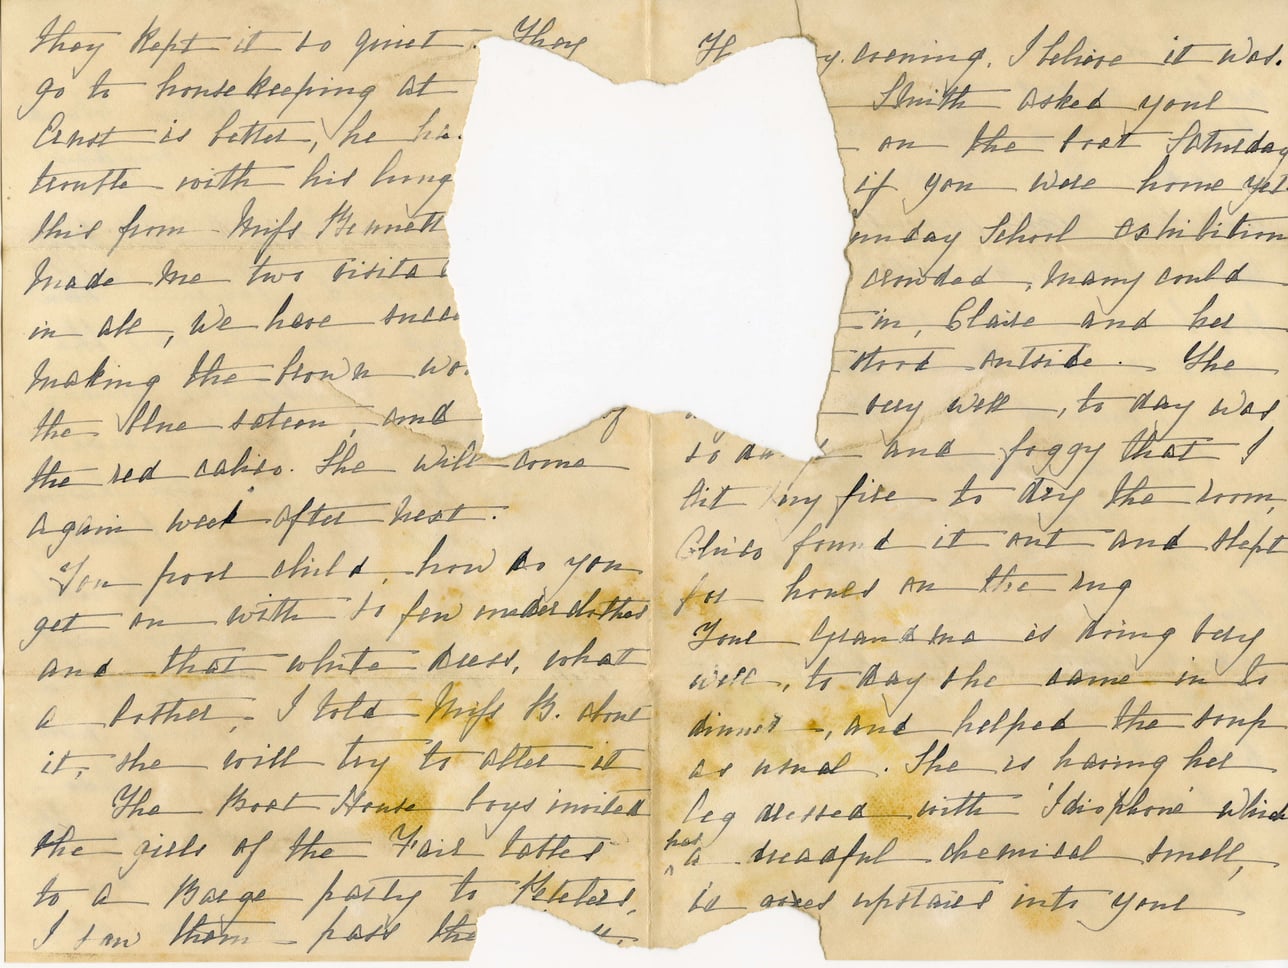 they kept it so quiet. They
go to housekeeping at
Ernst is better, he ha
trouble with his lung
this from Miss Bennett
made me two visits
in all, we have succe
making the brown wo
the blue sateen, and
the red calico. She will come
again week after next.
You poor child, how do you
get on with so few underclothes
and that white dress, what
a bother, I told Miss B. about
it, she will try to alter it
The Boat House boys invited
the girls of the Fair tables
to a Barge party to
I saw them pass the
Th y evening, I believe it was.
Smith asked your
on the boat Saturday
if you were home yet
unday School exhibition
crowded, many could
in, Claire and her
stood outside. The
very well, to day was
so da and foggy that I
lit my fire to dry the room,
found it out and slept
for hours on the rug
Your Grandma is doing very
well, to day she came in to
dinner, and helped the soup
as usual. She is having her
leg dressed with 'Idiophone' which
has
a dreadful chemical smell,
it goes upstairs into your